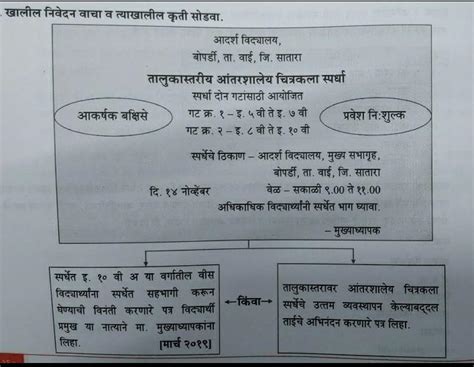 खालील निवेदन वाचा व त्याखालील कृती सोडवा.
आदर्श विद्यालय,
बोपर्डी, ता. वाई, जि. सातारा
तालुकास्तरीय आंतरशालेय चित्रकला स्पर्धा
स्पर्धा दोन गटांसाठी आयोजित
आकर्षक बक्षिसे
गट क्र. १ – इ. ५ वी ते इ. ७ वी
गट क्र. २ – इ. ८ वी ते इ. १० वी
प्रवेश नि:शुल्क
स्पर्धेचे ठिकाण – आदर्श विद्यालय, मुख्य सभागृह,
बोपर्डी, ता. वाई, जि. सातारा
दि. १४ नोव्हेंबर वेळ – सकाळी ९.०० ते ११.००
अधिकाधिक विद्यार्थ्यांनी स्पर्धेत भाग घ्यावा.
– मुख्याध्यापक
स्पर्धेत इ. १० वी अ या वर्गातील वीस
विद्यार्थ्यांना स्पर्धेत सहभागी करून
घेण्याची विनंती करणारे पत्र विद्यार्थी
प्रमुख या नात्याने मा. मुख्याध्यापकांना
लिहा. [मार्च २०१९]
किंवा
तालुकास्तरावर आंतरशालेय चित्रकला
स्पर्धेचे उत्तम व्यवस्थापन केल्याबद्दल
ताईचे अभिनंदन करणारे पत्र लिहा.